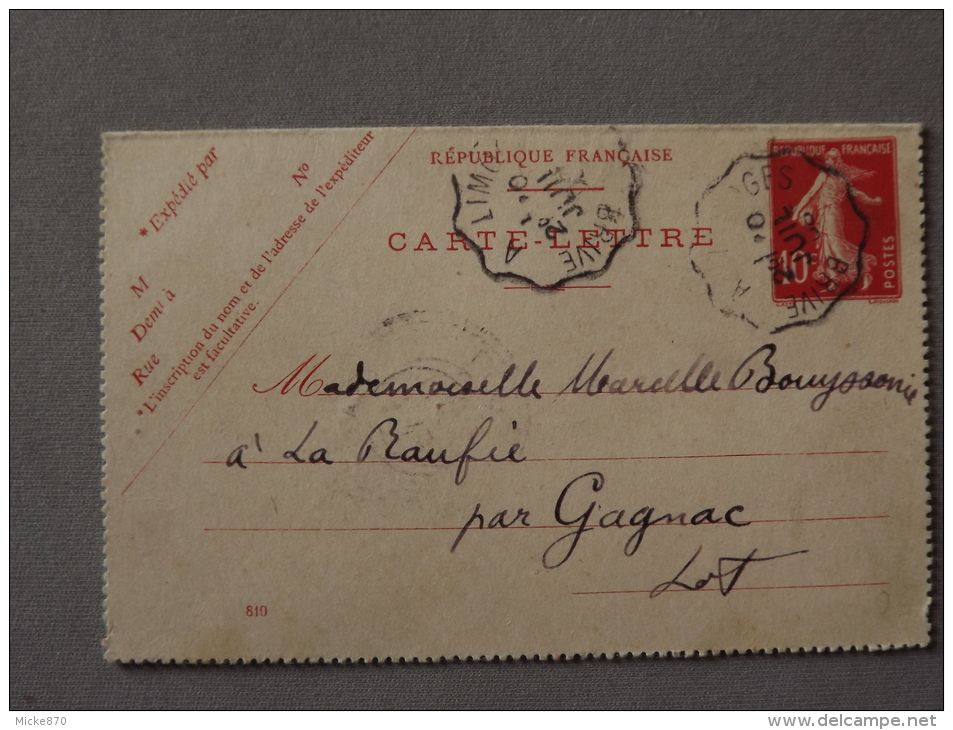 RÉPUBLIQUE FRANÇAISE
CARTE-LETTRE
* Expédié par
M
Demt à
Rue
No
*L'inscription du nom et de l'adresse de l'expéditeur
est facultative.
RÉPUBLIQUE FRANÇAISE
10c
POSTES
BRIVE A LIM
BRIVE A GES
Mademoiselle Marcelle Bouyssonie
à La Raufie
par Gagnac
Lot
810
Micke870
www.delcampe.net